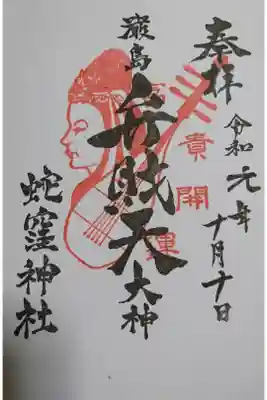 奉拝
令和元年
十月十日
巌島
弁財天
大神
蛇窪神社